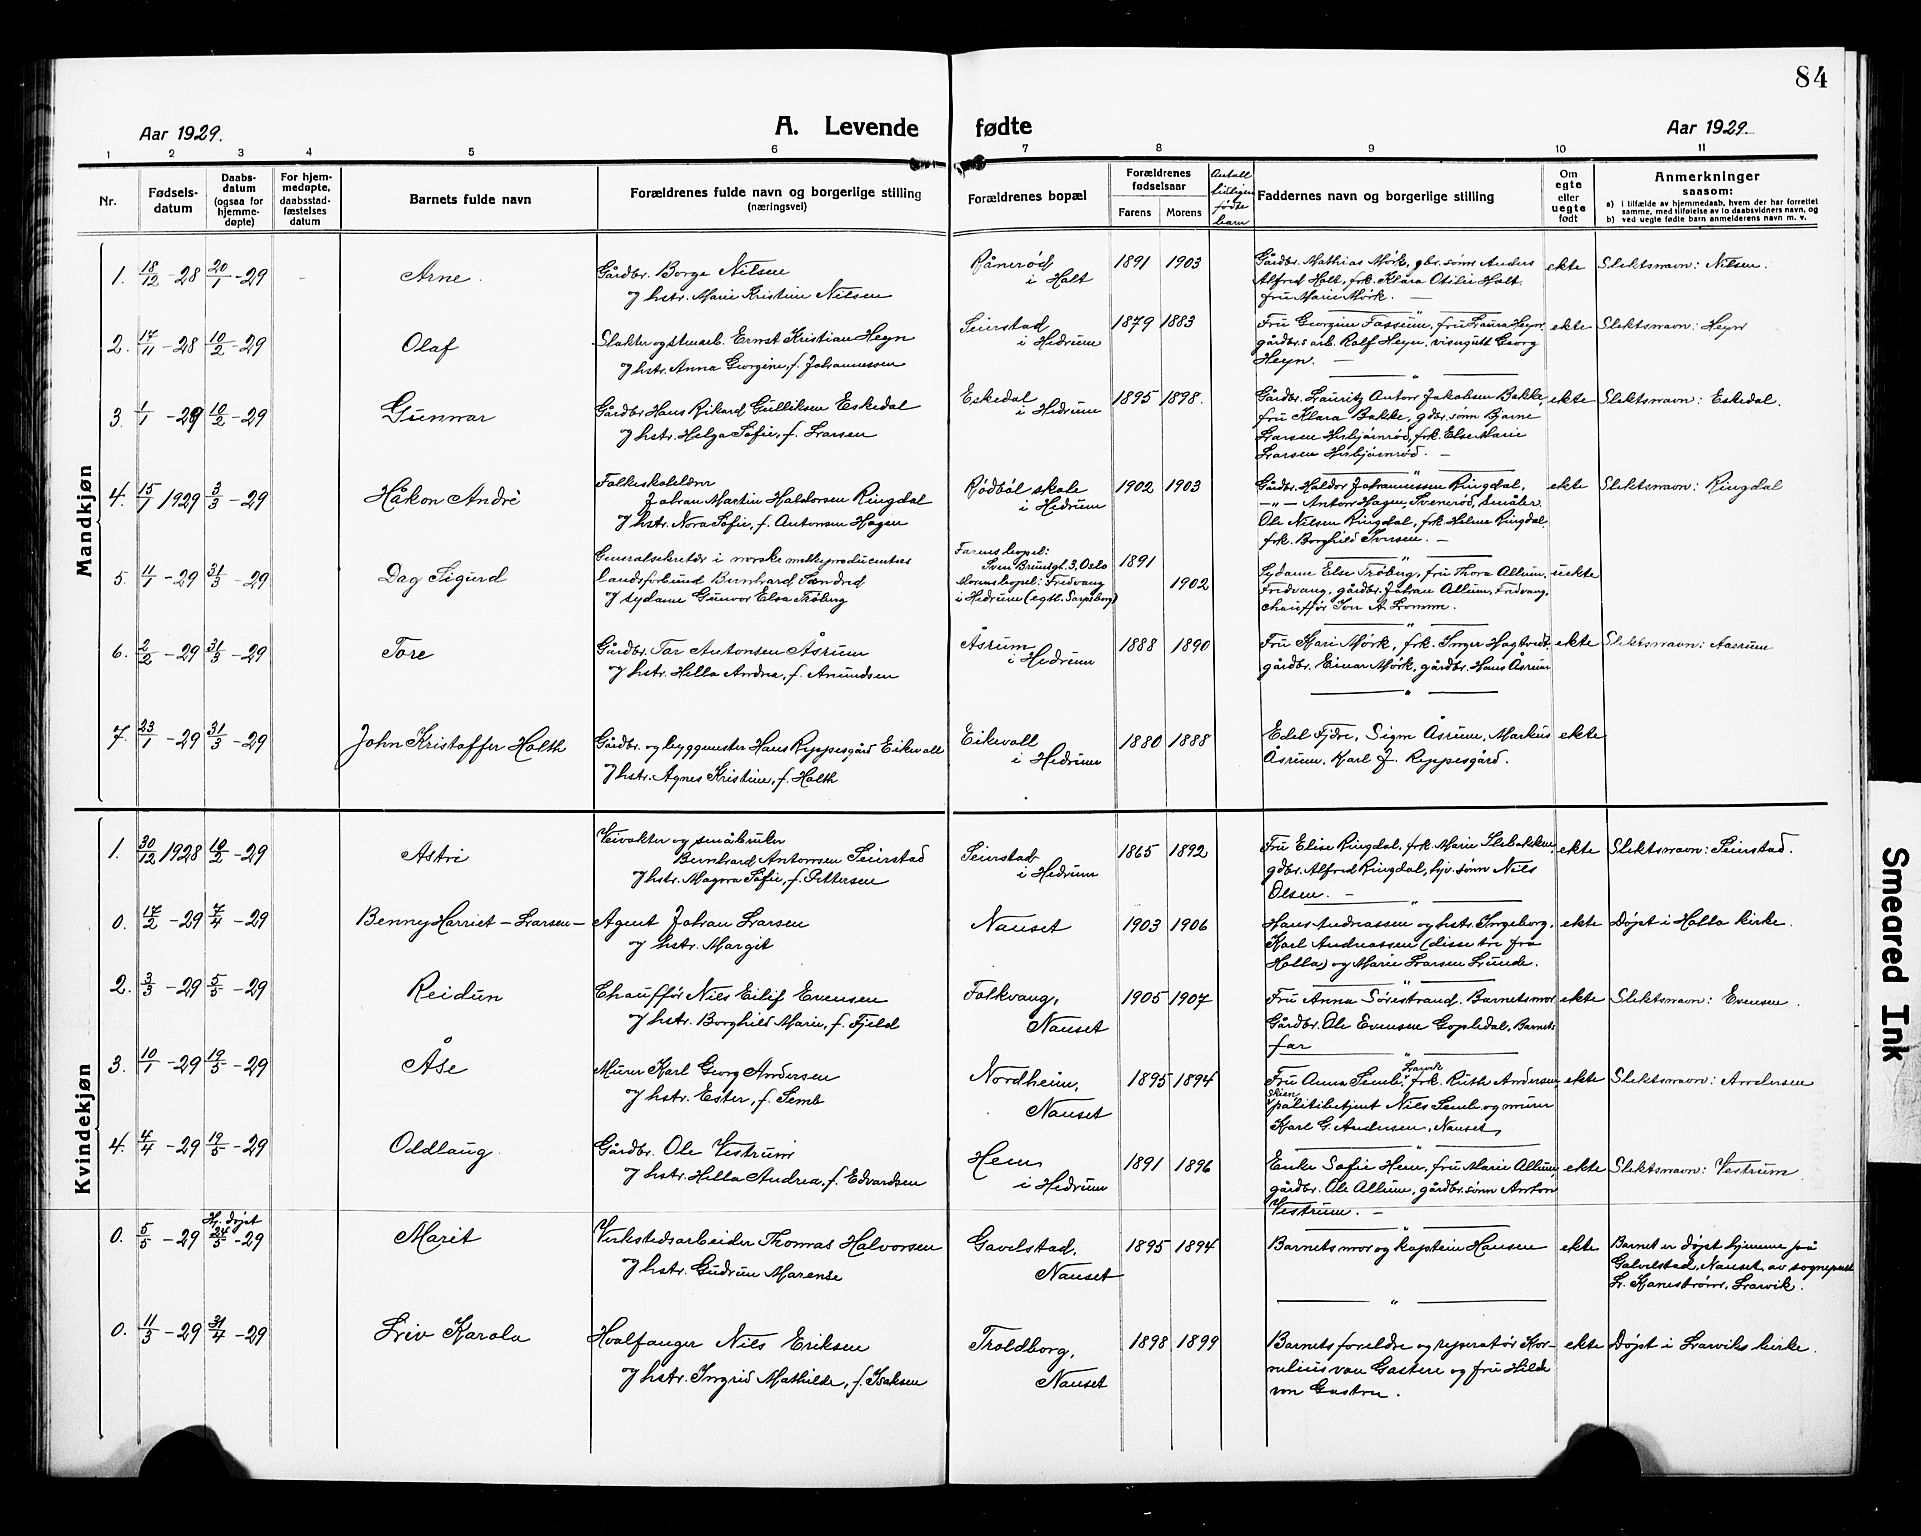 84
Aar 1929.
A. Levende fødte
Aar 1929.
1 2 3 4 5 6 7 8 9 10 11
Nr.
Fødsels-
datum
Daabs-
datum
(ogsaa for
hjemme-
døpte)
For hjem-
medøpte,
daabsstad-
fæstelses
datum
Barnets fulde navn
Forældrenes fulde navn og borgerlige stilling
(næringsvei)
Forældrenes bopæl
Forældrenes
fødselsaar
Farens Morens
Antall
tidligere
fødte
barn
Faddernes navn og borgerlige stilling
Om
egte
eller
uegte
født
Anmerkninger
saasom:
a) i tilfælde av hjemmedaab, hvem der har forrettet
samme, med tilføielse av to daabsvidners navn, og
b) ved uegte fødte barn anmelderens navn m. v.
Mandkjøn
1. 18/12 -28 20/1 -29 Arne.
Gårdbr. Borge Nilsen
og hstr. Marie Kristine Nilsen
Rånerød
i Halt
1891 1903
Gårdbr. Mathias Mørk, gbr. sønn Anders
Alfred Holt, frk. Klara Otilie Holt.
fru Marie Mørk. —
ekte
Slektsnavn: Nilsen.
2. 17/11 -28 10/2 -29 Olaf
Slakter og stenarb. Ernst Kristian Heyn
og hstr. Anna Georgine, f. Johannessen
Seierstad
i Hedrum
1879 1883
Fru Georgine Fossum, fru Laura Heyn,
gårdbr.s arb. Ralf Heyn, visergutt Georg
Heyn. —
ekte
Slektsnavn: Heyn
3. 1/1 -29 10/2 -29 Gunnar
Gårdbr. Hans Rikard Gulliksen Eskedal
og hstr. Helga Sofie, f. Larsen
Eskedal
i Hedrum
1895 1898.
Gårdbr. Lauritz Anton Jakobsen Bakke,
fru Klara Bakke, gdbr. sønn Bjarne
Larsen Hisbjørnrød, frk. Else Marie
Larsen Hisbjørnrød. —
ekte
Slektsnavn: Eskedal.
4. 15/1 1929 3/3 -29 Håkon André
Folkeskolelærer
Johan Martin Haldorsen Ringdal
og hstr. Nora Sofie, f. Antonsen Hagen
Rødbøl skole
i Hedrum
1902 1903
Gårdbr. Haldor Johannessen Ringdal,
— " — Anton Hagen, Svenerød, småbr.
Ole Nilsen Ringdal, frk. Helene Ringdal,
frk. Borghild Iversen. —
ekte
Slektsnavn: Ringdal
5. 11/1 -29 31/3 -29 Dag Sigurd
Generalsekretær i norske melkeproducenters
landsforbund Bernhard Sandred
og sydame Gunvor Elsa Trøberg
Farens bopel:
Sven Bruunsgt. 3, Oslo
Morens bopel: Fridvang
i Hedrum (egtl. Sarpsborg)
1891
1902
Sydame Else Trøberg, fru Thora Allum,
Fridvang, gårdbr. Johan Allum, Fridvang,
chauffør Iver A. Lomm.
uekte
6. 2/2 -29 31/3 -29 Tore
Gårdbr. Tor Antonsen Åsrum
og hstr. Hella Andrea, f. Amundsen
Åsrum
i Hedrum
1888 1890
Fru Kari Mørk, frk. Inger Hagtvedt,
gårdbr. Einar Mørk, gårdbr. Hans Åsrum
ekte
Slektsnavn: Aasrum
7. 23/1 -29 31/3 -29 John Kristoffer Holth
Gårdbr. og byggmester Hans Reppesgård Eikevall
og hstr. Agnes Kristine, f. Holth
Eikevall
i Hedrum
1880 1888
Edel Fjdre, Sigm Åsrum, Markus
Åsrum, Karl J. Reppesgård.
ekte
Kvindekjøn
1. 30/12 1928 10/2 -29 Astri
Veivokter og småbruker
Bernhard Antonsen Seierstad
og hstr. Magna Sofie, f. Pettersen
Seierstad
i Hedrum
1865 1892
Fru Elise Ringdal, frk. Marie Slebakken,
gdbr. Alfred Ringdal, hjv. sønn Nils
Olsen. —
ekte
Slektsnavn: Seierstad.
0. 17/2 -29 7/4 -29 Benny Harriet — Larsen —
Agent Johan Larsen
og hstr. Margit
Nanset
1903 1906
Hans Andreassen og hstr. Ingeborg.
Karl Andreassen (disse tre fra
Holla) og Marie Larsen Lunde.
ekte
Døpt i Holla kirke.
2. 3/3 -29 5/5 -29 Reidun
Chauffør Nils Eilif Evensen
og hstr. Borghild Marie, f. Fjeld
Folkvang,
Nanset
1905 1907
Fru Anna Sørestrand. Barnets mor
Gårdbr. Ole Evensen Gopledal, Barnets
far
ekte
Slektsnavn: Evensen.
3. 10/1 -29 19/5 -29 Åse
Murer Karl Georg Andersen
og hstr. Ester, f. Semb
Nordheim,
Nanset
1895 1894
Larvik
Fru Anna Semb, frk. Ruth Andersen
Skien
politibetjent Nils Semb og murer
Karl G. Andersen, Nanset,
ekte
Slektsnavn: Andersen
4. 4/4 -29 19/5 -29 Oddlaug.
Gårdbr. Ole Vestrum
og hstr. Hella Andrea, f. Edvardsen
Hem
i Hedrum
1891 1896
Enke Sofie Hem, fru Marie Allum,
gårdbr. Ole Allum, gårdbr. sønn Anton
Vestrum. —
ekte
Slektsnavn: Vestrum.
0. 5/5 -29 Hj. døpt 24/5 -29 Marit
Verkstedsarbeider Thomas Halvorsen
og hstr. Gudrun Marense
Gavelstad,
Nanset
1895 1894
Barnets mor og kaptein Hansen
ekte
Barnet er døpt hjemme på
Galvelstad, Nanset, av sogneprest
L. Kjanestrøm, Larvik.
0. 11/3 -29 31/4 -29 Liv Karola
Hvalfanger Nils Eriksen
og hstr. Ingrid Mathilde, f. Isaksen
Troldborg,
Nanset
1898 1899
Barnets foreldre og reperatør Kor-
nelius van Gastere og fru Hilde
von Gastere.
ekte
Døpt i Larviks kirke.
Smeared Ink